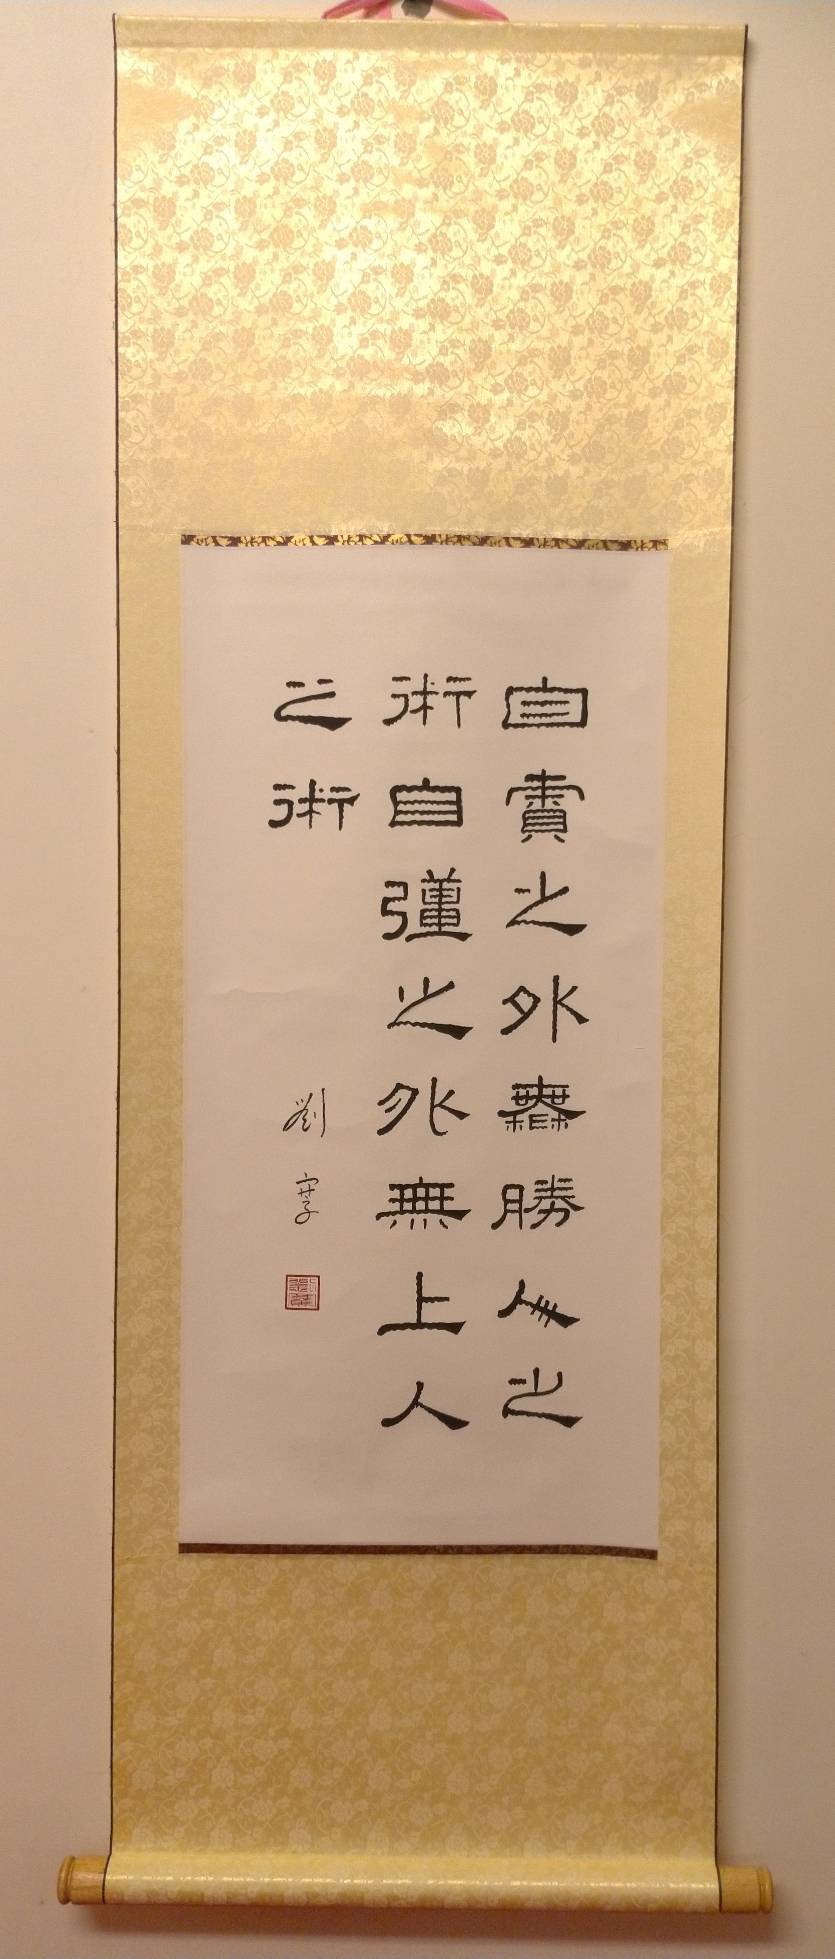 自責之外無勝人之
術自彊之外無上人
之術
劉